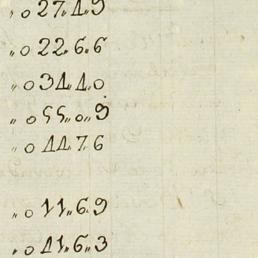 „ 0 27„1„9
„ 0 22„6„6
„ 0 31„1„0
„ 0 55„0„9
„ 0 11„7„6
„ 0 11„6„9
„ 0 11„6„3